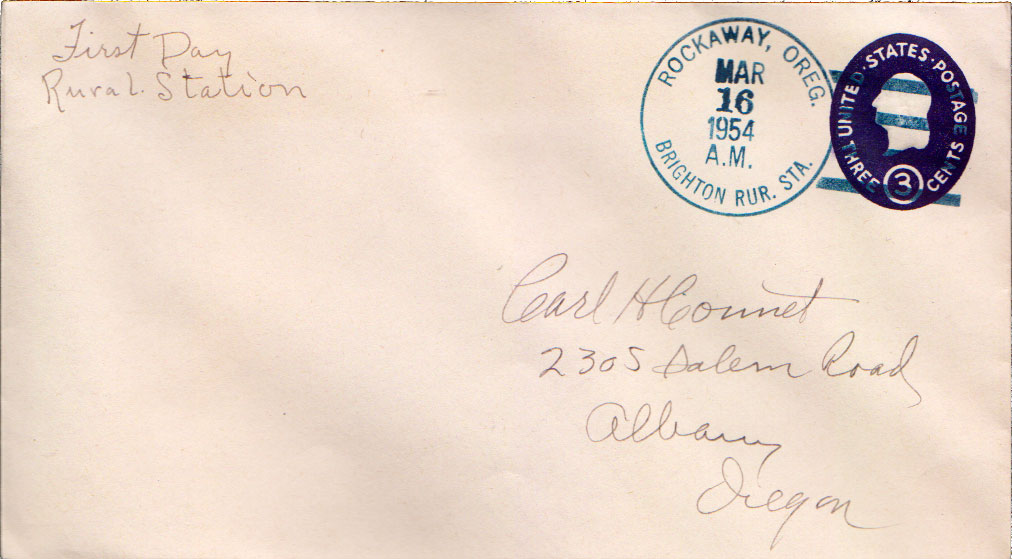 First Day
Rural Station
ROCKAWAY, OREG.
MAR
16
1954
A.M.
BRIGHTON RUR. STA.
UNITED · STATES · POSTAGE
THREE 3 CENTS
Carl H Connet
2305 Salem Road
Albany
Oregon